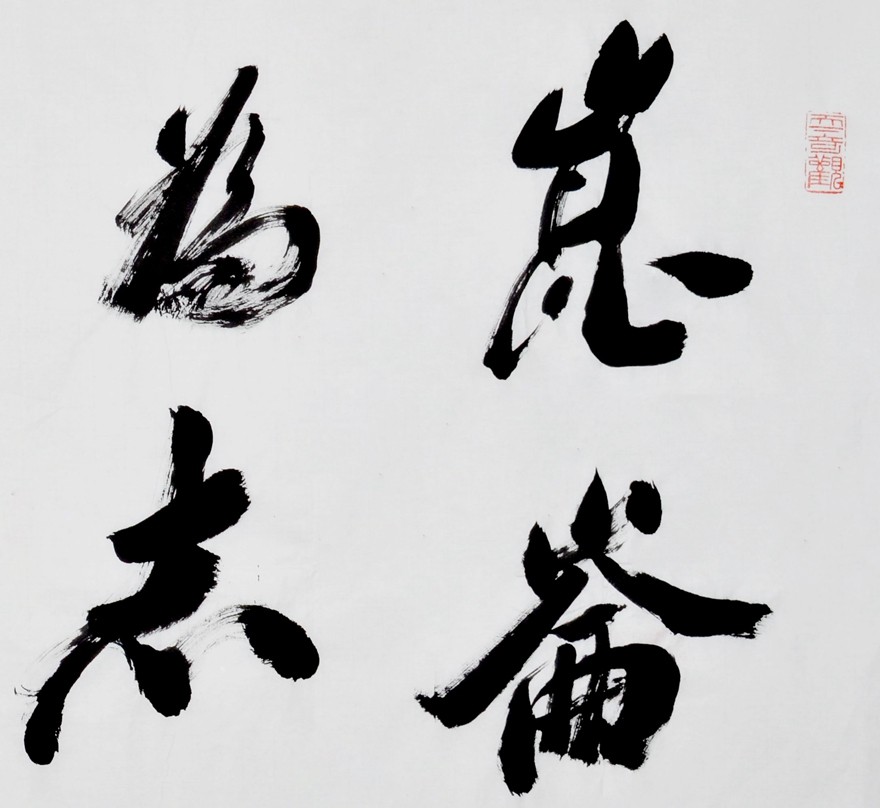 崑崙
為志